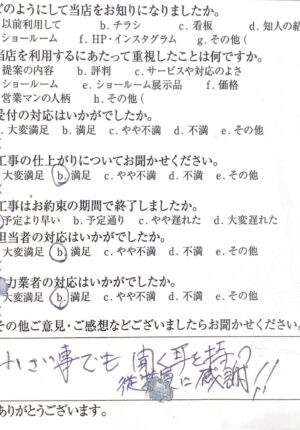 どのようにして当店をお知りになりましたか。
以前利用して b. チラシ c. 看板 d. 知人の紹
ショールーム f. HP・インスタグラム g. その他(
当店を利用するにあたって重視したことは何ですか。
提案の内容 b. 評判 c. サービスや対応のよさ
ショールーム e. ショールーム展示品 f. 価格
営業マンの人柄 h. その他(
受付の対応はいかがでしたか。
. 大変満足 b. 満足 c. やや不満 d. 不満 e. その他
工事の仕上がりについてお聞かせください。
. 大変満足 b. 満足 c. やや不満 d. 不満 e. その他
工事はお約束の期間で終了しましたか。
予定より早い b. 予定通り c. やや遅れた d. 大変遅れた
担当者の対応はいかがでしたか。
大変満足 b. 満足 c. やや不満 d. 不満 e. その他
力業者の対応はいかがでしたか。
大変満足 b. 満足 c. やや不満 d. 不満 e. その他
その他ご意見・ご感想などございましたらお聞かせください。
小さい事でも 聞く耳を持つ
従業員に感謝!!
ありがとうございます。